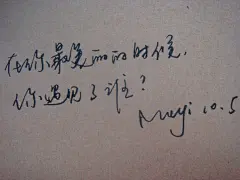 在你最美丽的时候，
你遇见了谁？
10.5